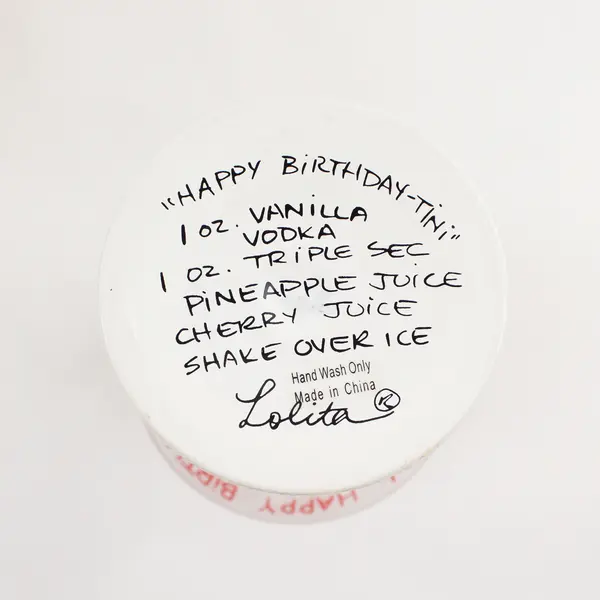 "HAPPY BiRTHDAY-TiNi"
1 oz. VANiLLA
VODKA
1 oz. TRiPLE SEC
PiNEAPPLE JUiCE
CHERRY JUiCE
SHAKE OVER ICE
Hand Wash Only
Made in China
Lolita ®
HAPPY BiRT